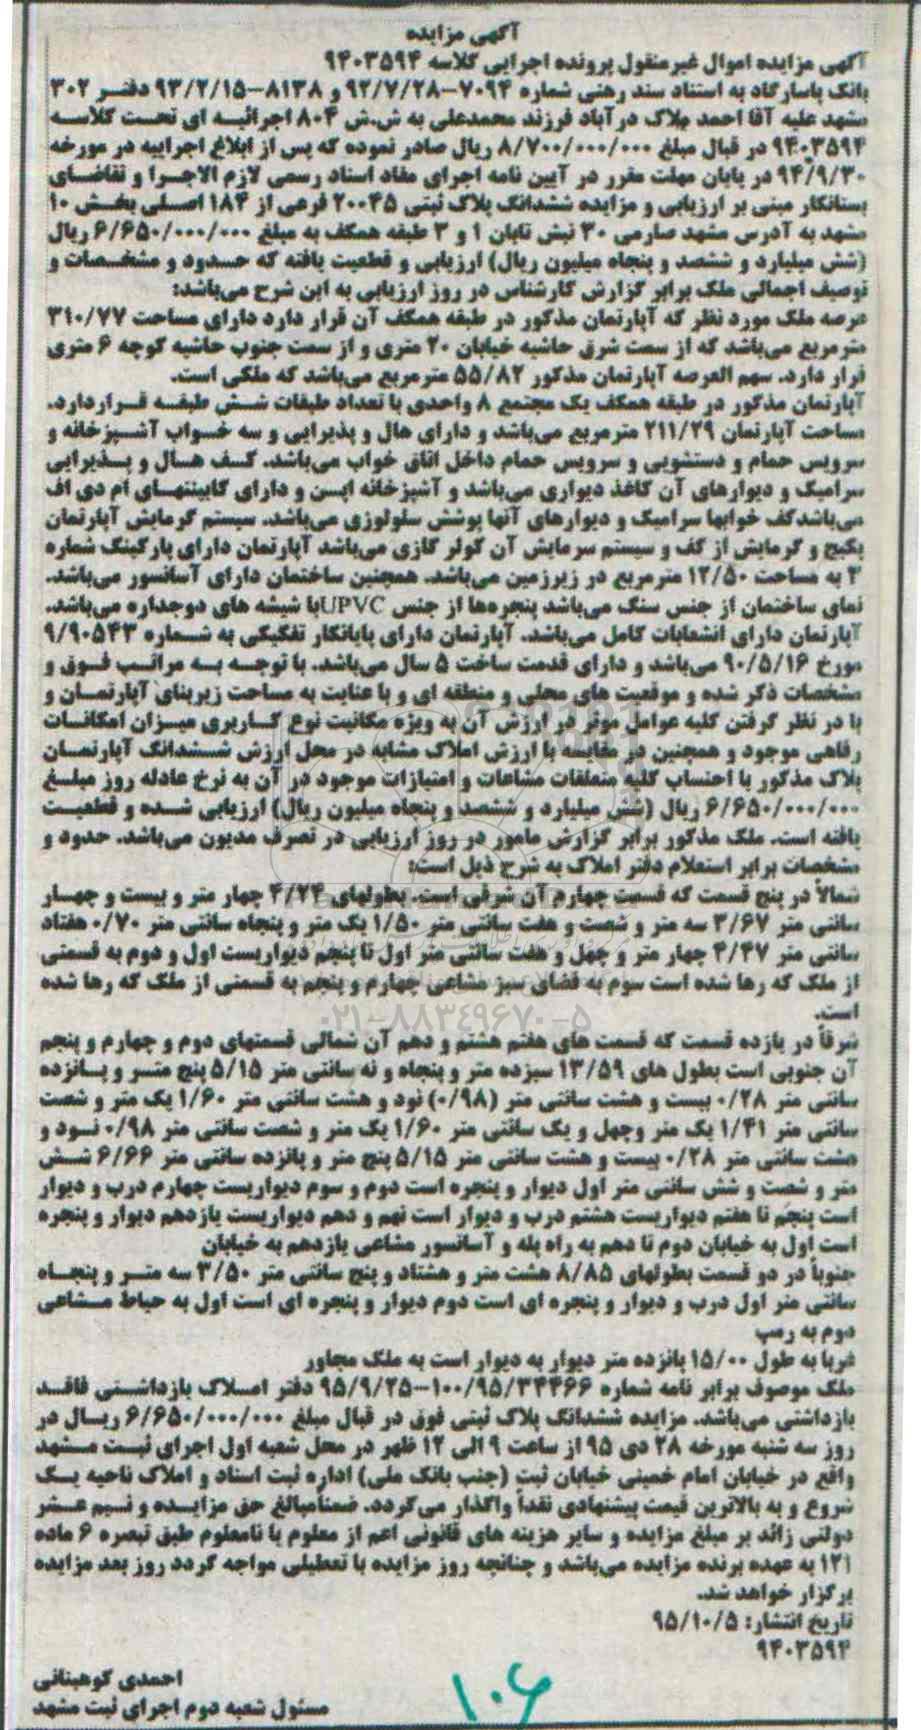 آگهی مزایده
آگهی مزایده اموال غیرمنقول پرونده اجرایی کلاسه ۹۴۰۳۵۹۴
بانک پاسارگاد به استناد سند رهنی شماره ۷۰۹۴-۹۲/۷/۲۸ و ۸۱۳۸-۹۳/۲/۱۵ دفتر ۳۰۲
مشهد علیه آقا احمد ملاک درآباد فرزند محمدعلی به ش.ش ۸۰۴ اجرائیه ای تحت کلاسه
۹۴۰۳۵۹۴ در قبال مبلغ ۸/۷۰۰/۰۰۰/۰۰۰ ریال صادر نموده که پس از ابلاغ اجراییه در مورخه
۹۴/۹/۳۰ در پایان مهلت مقرر در آیین نامه اجرای مفاد اسناد رسمی لازم الاجرا و تقاضای
بستانکار مبنی بر ارزیابی و مزایده ششدانگ پلاک ثبتی ۲۰۰۴۵ فرعی از ۱۸۴ اصلی بخش ۱۰
مشهد به آدرس مشهد صارمی ۳۰ نبش تابان ۱ و ۳ طبقه همکف به مبلغ ۶/۶۵۰/۰۰۰/۰۰۰ ریال
(شش میلیارد و ششصد و پنجاه میلیون ریال) ارزیابی و قطعیت یافته که حدود و مشخصات و
توصیف اجمالی ملک برابر گزارش کارشناس در روز ارزیابی به این شرح می‌باشد:
عرصه ملک مورد نظر که آپارتمان مذکور در طبقه همکف آن قرار دارد دارای مساحت ۳۱۰/۷۷
مترمربع می‌باشد که از سمت شرق حاشیه خیابان ۲۰ متری و از سمت جنوب حاشیه کوچه ۶ متری
قرار دارد. سهم العرصه آپارتمان مذکور ۵۵/۸۲ مترمربع می‌باشد که ملکی است.
آپارتمان مذکور در طبقه همکف یک مجتمع ۸ واحدی با تعداد طبقات شش طبقه قراردارد.
مساحت آپارتمان ۲۱۱/۲۹ مترمربع می‌باشد و دارای هال و پذیرایی و سه خواب آشپزخانه و
سرویس حمام و دستشویی و سرویس حمام داخل اتاق خواب می‌باشد. کف هال و پذیرایی
سرامیک و دیوارهای آن کاغذ دیواری می‌باشد و آشپزخانه اپن و دارای کابینتهای ام دی اف
می‌باشدکف خوابها سرامیک و دیوارهای آنها پوشش سلولوزی می‌باشد. سیستم گرمایش آپارتمان
پکیج و گرمایش از کف و سیستم سرمایش آن کولر گازی می‌باشد آپارتمان دارای پارکینگ شماره
۳ به مساحت ۱۲/۵۰ مترمربع در زیرزمین می‌باشد. همچنین ساختمان دارای آسانسور می‌باشد.
نمای ساختمان از جنس سنگ می‌باشد پنجره‌ها از جنس UPVCبا شیشه های دوجداره می‌باشد.
آپارتمان دارای انشعابات کامل می‌باشد. آپارتمان دارای پایانکار تفکیکی به شماره ۹/۹۰۵۴۳
مورخ ۹۰/۵/۱۶ می‌باشد و دارای قدمت ساخت ۵ سال می‌باشد. با توجه به مراتب فوق و
مشخصات ذکر شده و موقعیت های محلی و منطقه ای و با عنایت به مساحت زیربنای آپارتمان و
با در نظر گرفتن کلیه عوامل موثر در ارزش آن به ویژه مکانیت نوع کاربری میزان امکانات
رفاهی موجود و همچنین در مقایسه با ارزش املاک مشابه در محل ارزش ششدانگ آپارتمان
پلاک مذکور با احتساب کلیه متعلقات مشاعات و امتیازات موجود در آن به نرخ عادله روز مبلغ
۶/۶۵۰/۰۰۰/۰۰۰ ریال (شش میلیارد و ششصد و پنجاه میلیون ریال) ارزیابی شده و قطعیت
یافته است. ملک مذکور برابر گزارش مامور در روز ارزیابی در تصرف مدیون می‌باشد. حدود و
مشخصات برابر استعلام دفتر املاک به شرح ذیل است:
شمالاً در پنج قسمت که قسمت چهارم آن شرقی است. بطولهای ۴/۲۴ چهار متر و بیست و چهار
سانتی متر ۳/۶۷ سه متر و شصت و هفت سانتی متر ۱/۵۰ یک متر و پنجاه سانتی متر ۰/۷۰ هفتاد
سانتی متر ۴/۴۷ چهار متر و چهل و هفت سانتی متر اول تا پنجم دیواریست اول و دوم به قسمتی
از ملک که رها شده است سوم به فضای سبز مشاعی چهارم و پنجم به قسمتی از ملک که رها شده
است.
۰۲۱-۸۸۳۴۹۶۷۰-۵
شرقاً در یازده قسمت که قسمت های هفتم هشتم و دهم آن شمالی قسمتهای دوم و چهارم و پنجم
آن جنوبی است بطول های ۱۳/۵۹ سیزده متر و پنجاه و نه سانتی متر ۵/۱۵ پنج متر و پانزده
سانتی متر ۰/۲۸ بیست و هشت سانتی متر (۰/۹۸) نود و هشت سانتی متر ۱/۶۰ یک متر و شصت
سانتی متر ۱/۴۱ یک متر وچهل و یک سانتی متر ۱/۶۰ یک متر و شصت سانتی متر ۰/۹۸ نود و
هشت سانتی متر ۰/۲۸ بیست و هشت سانتی متر ۵/۱۵ پنج متر و پانزده سانتی متر ۶/۶۶ شش
متر و شصت و شش سانتی متر اول دیوار و پنجره است دوم و سوم دیواریست چهارم درب و دیوار
است پنجم تا هفتم دیواریست هشتم درب و دیوار است نهم و دهم دیواریست یازدهم دیوار و پنجره
است اول به خیابان دوم تا دهم به راه پله و آسانسور مشاعی یازدهم به خیابان
جنوباً در دو قسمت بطولهای ۸/۸۵ هشت متر و هشتاد و پنج سانتی متر ۳/۵۰ سه متر و پنجاه
سانتی متر اول درب و دیوار و پنجره ای است دوم دیوار و پنجره ای است اول به حیاط مشاعی
دوم به رمپ
غربا به طول ۱۵/۰۰ پانزده متر دیوار به دیوار است به ملک مجاور
ملک موصوف برابر نامه شماره ۱۰۰/۹۵/۳۴۴۶۶-۹۵/۹/۲۵ دفتر املاک بازداشتی فاقد
بازداشتی می‌باشد. مزایده ششدانگ پلاک ثبتی فوق در قبال مبلغ ۶/۶۵۰/۰۰۰/۰۰۰ ریال در
روز سه شنبه مورخه ۲۸ دی ۹۵ از ساعت ۹ الی ۱۲ ظهر در محل شعبه اول اجرای ثبت مشهد
واقع در خیابان امام خمینی خیابان ثبت (جنب بانک ملی) اداره ثبت اسناد و املاک ناحیه یک
شروع و به بالاترین قیمت پیشنهادی نقداً واگذار می‌گردد. ضمناًمبالغ حق مزایده و نیم عشر
دولتی زائد بر مبلغ مزایده و سایر هزینه های قانونی اعم از معلوم یا نامعلوم طبق تبصره ۶ ماده
۱۲۱ به عهده برنده مزایده می‌باشد و چنانچه روز مزایده با تعطیلی مواجه گردد روز بعد مزایده
برگزار خواهد شد.
تاریخ انتشار: ۹۵/۱۰/۵
۹۴۰۳۵۹۴
احمدی کوهبنانی
مسئول شعبه دوم اجرای ثبت مشهد
۱۰۶